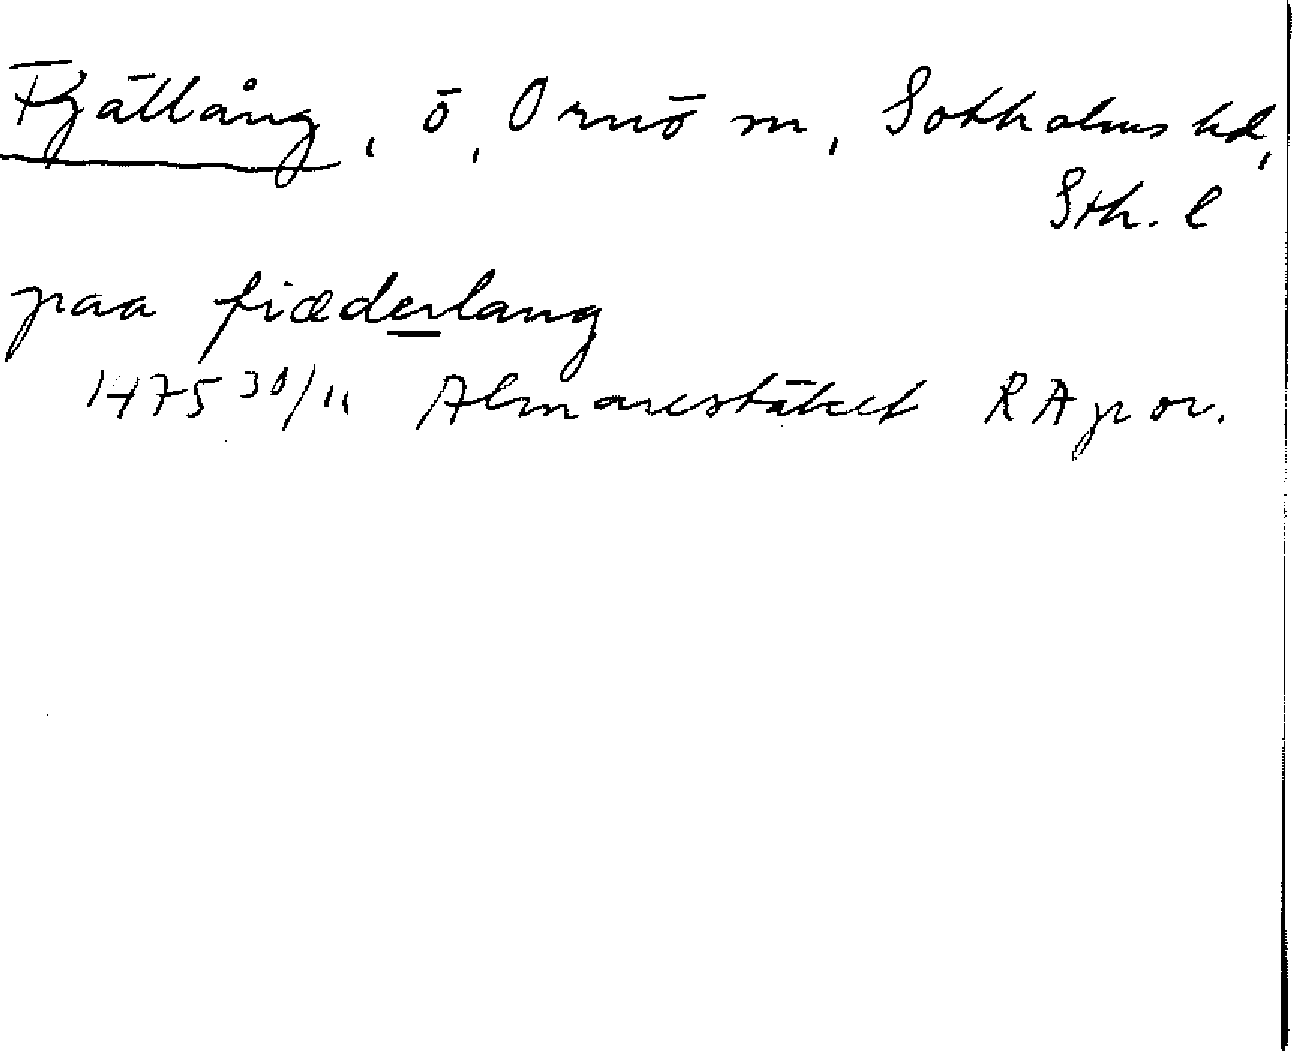 Fjällång, ö, Ornö sn, Sotholms hd,
Sth. l
paa fiæderlang
1475 30/11 Almarestäket RAp or.